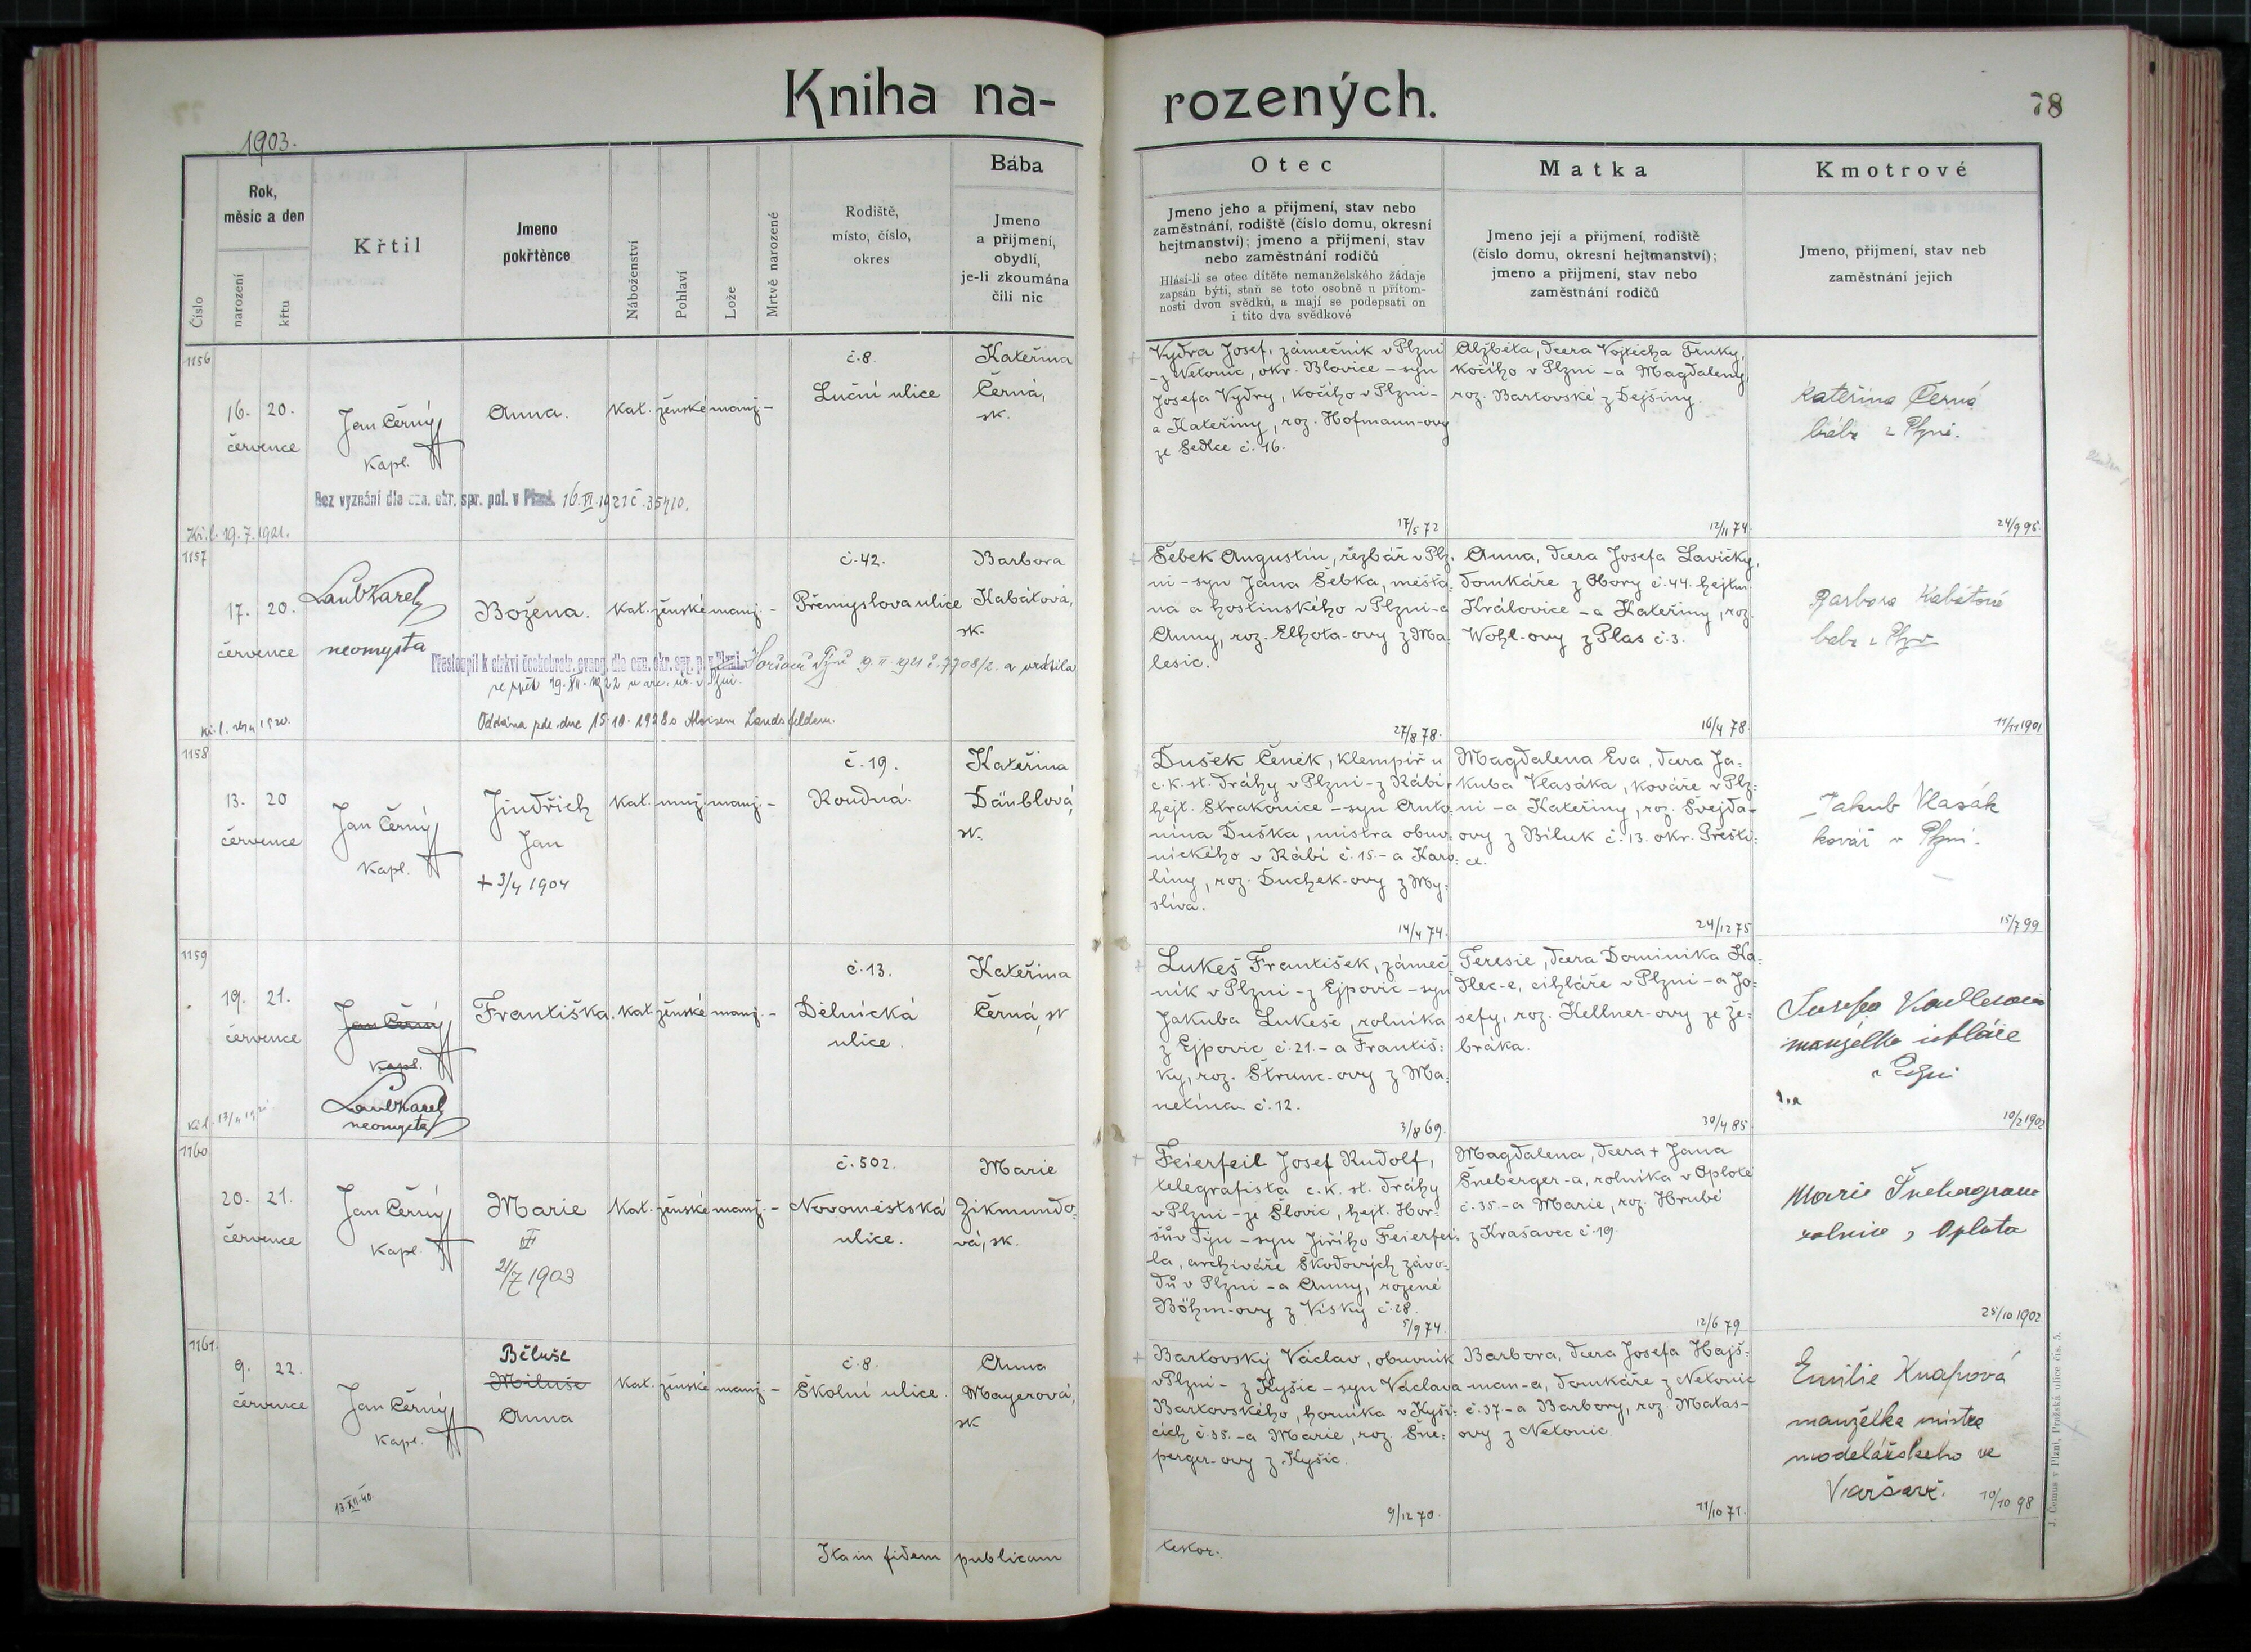 Kniha na-
rozených.
78
1903.
Číslo
Rok,
měsíc a den
narození
křtu
Křtil
Jmeno
pokřtěnce
Náboženství
Pohlaví
Lože
Mrtvě narozené
Rodiště,
místo, číslo,
okres
Bába
Jmeno
a přijmení,
obydlí,
je-li zkoumána
čili nic
Otec
Jmeno jeho a přijmení, stav nebo
zaměstnání, rodiště (číslo domu, okresní
hejtmanství); jmeno a přijmení, stav
nebo zaměstnání rodičů
Hlásí-li se otec dítěte nemanželského žádaje
zapsán býti, staň se toto osobně u přítom-
nosti dvou svědků, a mají se podepsati on
i tito dva svědkové
Matka
Jmeno její a přijmení, rodiště
(číslo domu, okresní hejtmanství);
jmeno a přijmení, stav nebo
zaměstnání rodičů
Kmotrové
Jmeno, přijmení, stav neb
zaměstnání jejich
1156
16. 20.
července
Jan Černý
Kapl.
Anna.
Kat. ženské manž. -
č. 8.
Luční ulice
Kateřina
Černá,
zk.
Bez vyznání dle ozn. okr. spr. pol. v Plzni. 16.VI.1921 č. 35410.
Kř. l. 19.7.1921.
Vydra Josef, zámečník v Plzni
- z Netonic, okr. Blovice - syn
Josefa Vydry, kočího v Plzni -
a Kateřiny, roz. Hofmann-ovy
ze Sedlce č. 16.
17/5 72
Alžběta, dcera Vojtěcha Trnky,
kočího v Plzni - a Magdaleny,
roz. Bartovské z Dejšiny.
12/11 74.
Kateřina Černá
bába z Plzně.
24/9 95.
1157
17. 20.
července
Laub Karel
neomysta
Božena.
Kat. ženské manž. -
č. 42.
Přemyslova ulice
Barbora
Kabátová,
zk.
Přestoupil k církvi českobratr. evang. dle ozn. okr. spr. p. v Horšově Týně 19.II.1921 č. 7708/2. a vrátila
se zpět 19.XII.1922 u arc. úř. v Plzni.
Oddána zde dne 15.10.1928 s Aloisem Landsfeldem.
Šebek Augustin, řezbář v Plz-
ni - syn Jana Šebka, měšťa-
na a hostinského v Plzni - a
Anny, roz. Elhota-ovy z Ma-
lesic.
27/8 78.
Anna, dcera Josefa Lavičky,
domkáře z Obory č. 44. hejtm.
Královice - a Kateřiny, roz.
Wohl-ovy z Plas č. 3.
16/4 78.
Barbora Kabátová
bába z Plzně
11/11 1901
1158
13. 20
července
Jan Černý
Kapl.
Jindřich
Jan
+ 3/4 1904
Kat. muž. manž. -
č. 19.
Roudná.
Kateřina
Däublová,
zk.
Dušek Čeněk, klempíř u
c. k. st. dráhy v Plzni - z Rábí,
hejt. Strakonice - syn Anto-
nína Duška, mistra obuv-
nického v Rábí č. 15. - a Karo-
líny, roz. Duchek-ovy z My-
slíva.
14/4 74.
Magdalena Eva, dcera Ja-
kuba Vlasáka, kováře v Plz-
ni - a Kateřiny, roz. Švejda-
ovy z Biluk č. 13. okr. Přešti-
ce.
24/12 75
Jakub Vlasák
kovář v Plzni.
15/7 99
1159
19. 21.
července
Jan Černý
Kapl.
Laub Karel
neomysta
Františka.
Kat. ženské manž. -
č. 13.
Dělnická
ulice.
Kateřina
Černá, zk
Lukeš František, zámeč-
ník v Plzni - z Ejpovic - syn
Jakuba Lukeše, rolníka
z Ejpovic č. 21. - a Františ-
ky, roz. Štrunc-ovy z Ma-
netína č. 12.
3/8 69.
Teresie, dcera Dominika Ka-
dlec-e, cihláře v Plzni - a Jo-
sefy, roz. Kellner-ovy ze Že-
bráka.
30/4 85.
Josefa Kadlecová
manželka cihláře
v Plzni
10/2 1902
1160
20. 21.
července
Jan Černý
Kapl.
Marie
21/7 1903
Kat. ženské manž. -
č. 502.
Novoměstská
ulice.
Marie
Zikmundo-
vá, zk.
Feierfeil Josef Rudolf,
telegrafista c. k. st. dráhy
v Plzni - ze Šlovic, hejt. Hor-
šův Týn - syn Jiřího Feierfei-
la, archiváře Škodových závo-
dů v Plzni - a Anny, rozené
Böhm-ovy z Vísky č. 28.
5/9 74.
Magdalena, dcera + Jana
Šneberger-a, rolníka v Oplotě
č. 35. - a Marie, roz. Hrubé
z Krašavec č. 19.
12/6 79
Marie
rolnice z Oplota
25/10 1902
1161.
9. 22.
července
Jan Černý
Kapl.
13.XII.40.
Běluše
Miluše
Anna
Kat. ženské manž. -
č. 8.
Školní ulice.
Anna
Mayerová,
zk
Bartovský Václav, obuvník
v Plzni - z Kyšic - syn Václava
Bartovského, horníka v Kyši-
cích č. 35. - a Marie, roz. Šne-
perger-ovy z Kyšic.
9/12 70.
Barbora, dcera Josefa Hajš-
man-a, domkáře z Netonic
č. 37. - a Barbory, roz. Matas-
ovy z Netonic.
11/10 71.
Emilie Knapová
manželka mistra
modelářského ve
Varšavě. 10/10 98
Ita in fidem publicam
testor.
J. Čemus v Plzni, Pražská ulice čís. 5.